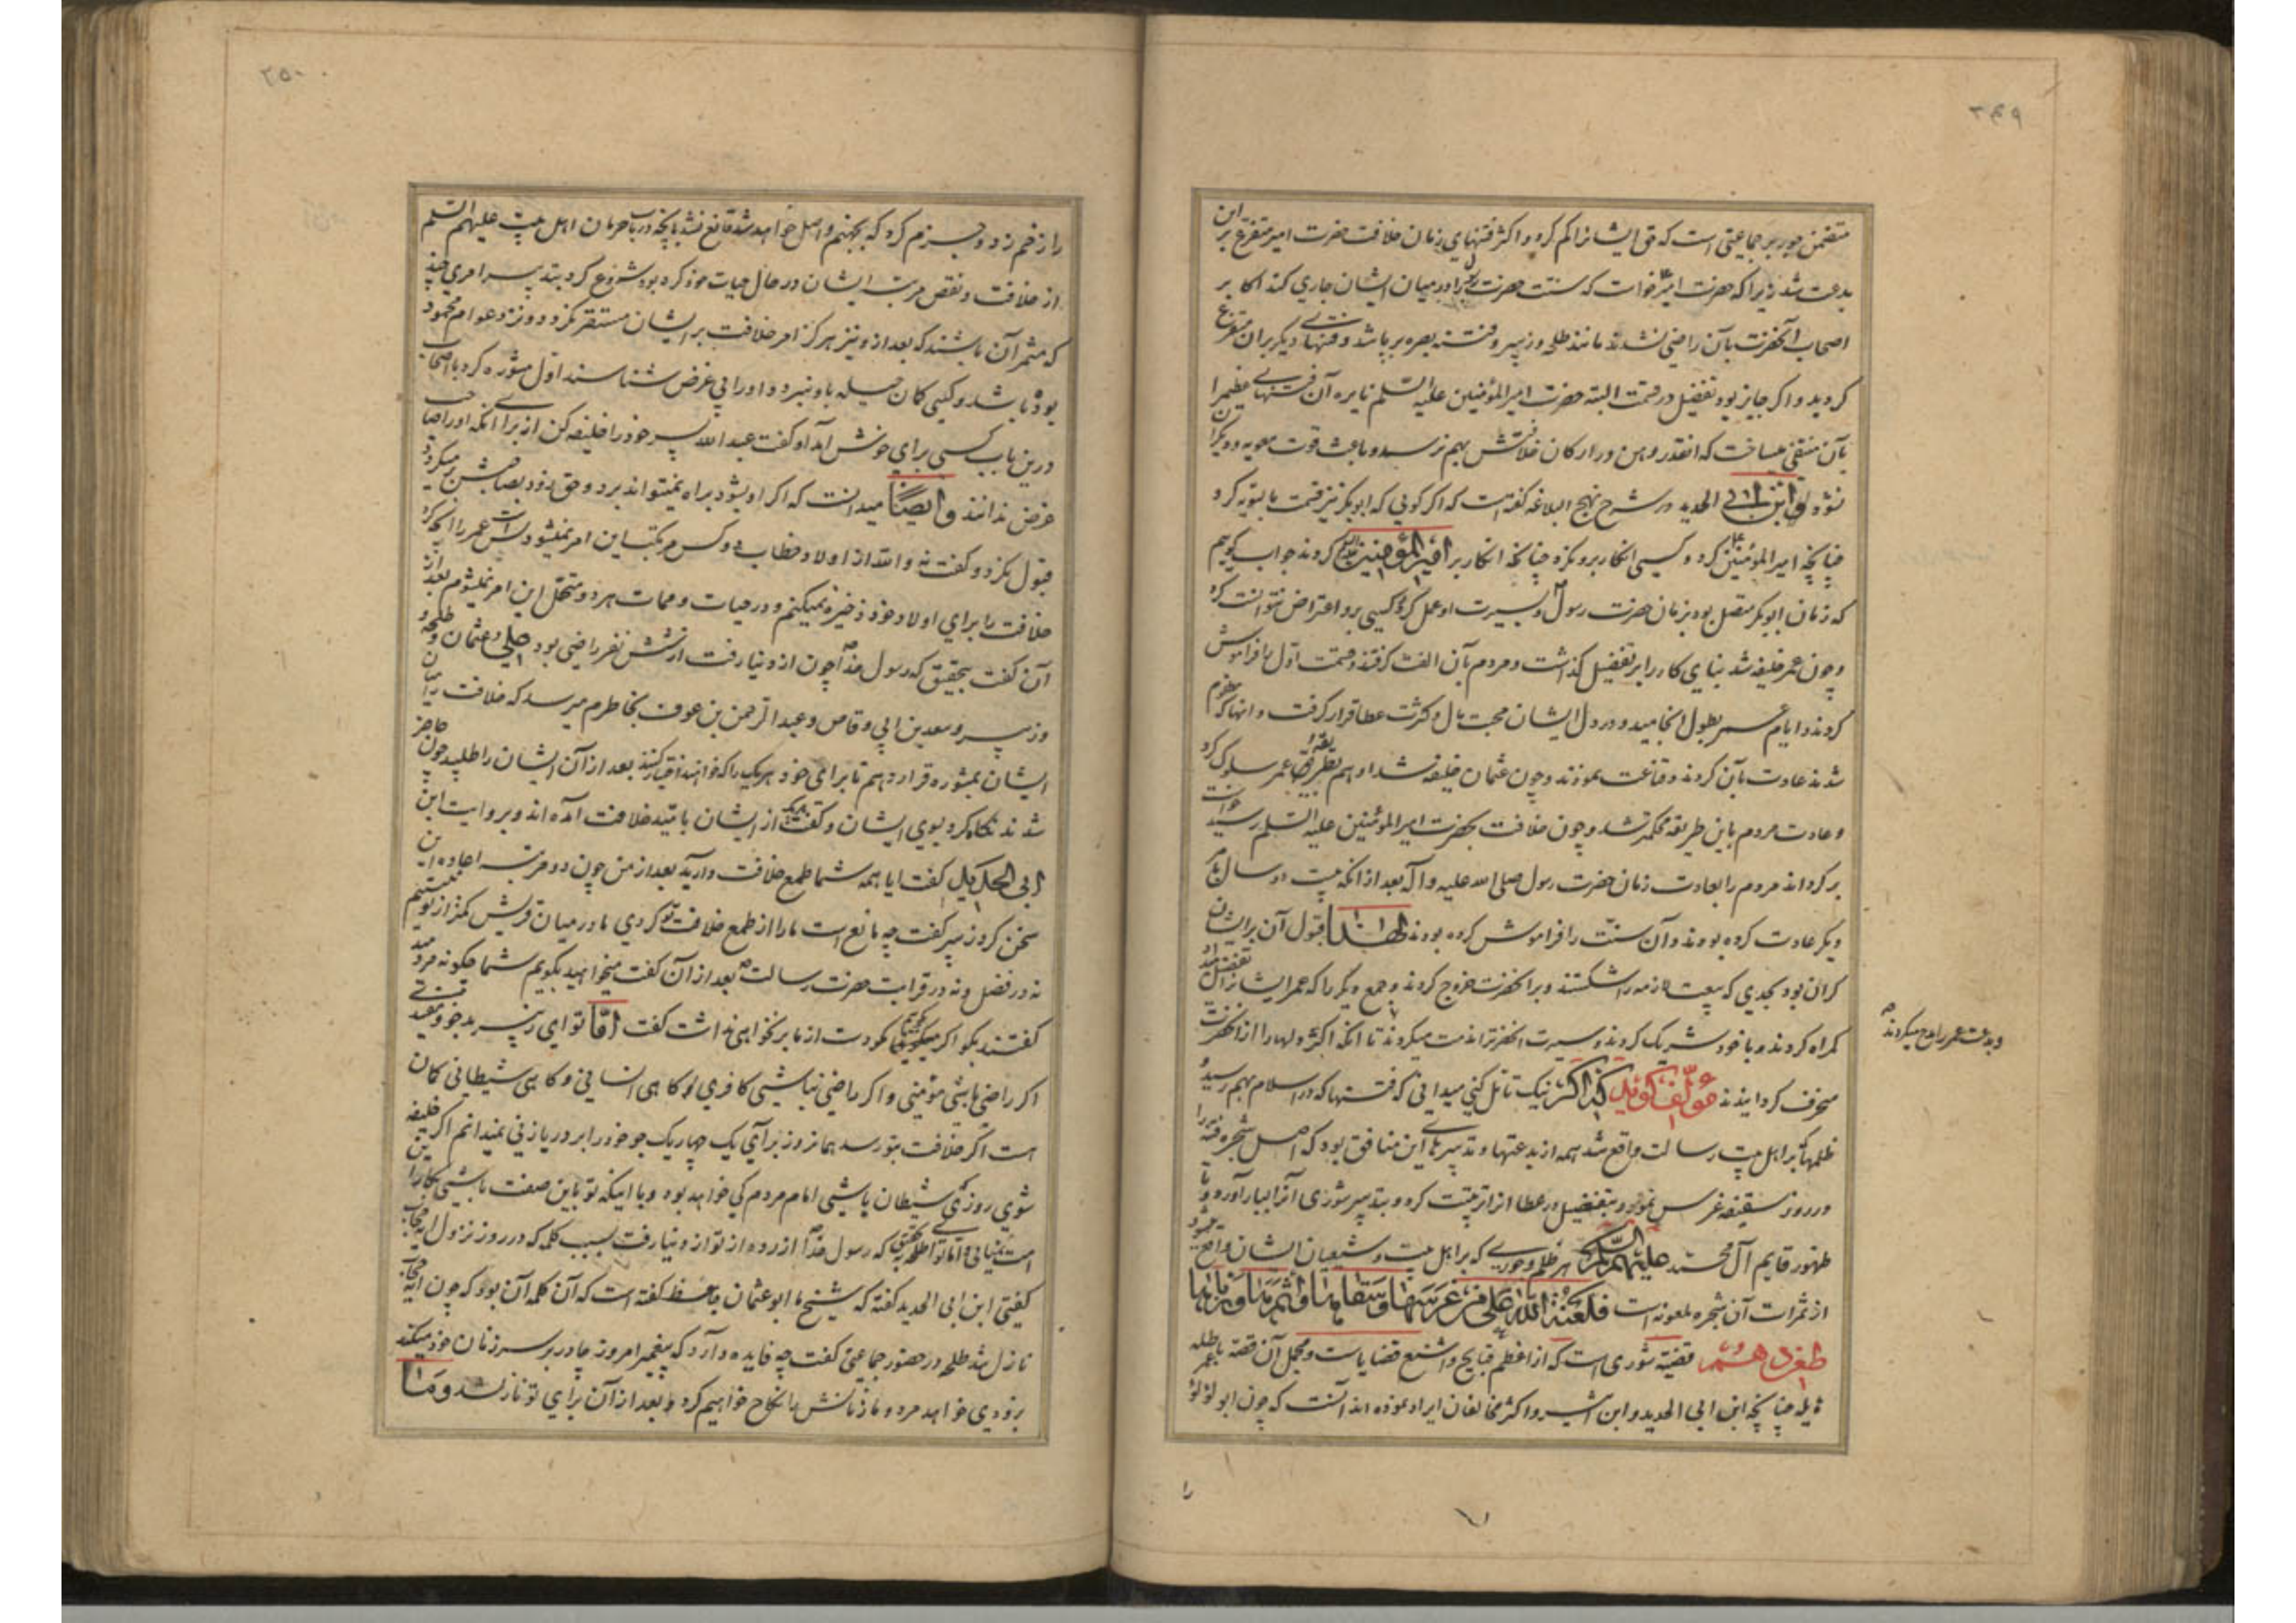 ۲۴۹
متضمن جور بر جماعتی است که حق ایشانرا کم کرد و اکثر فتنهای زمان خلافت حضرت امیر متفرع بر این
بدعت شد زیرا که حضرت امیر خواست که سنت حضرت رسول را در میان ایشان جاری کند اکابر
اصحاب آنحضرت بآن راضی نشدند مانند طلحه و زبیر و فتنه بصره برپا شد و فتنهای دیگر بران متفرع
کردید و اگر جایز بود تفضیل در قسمت البته حضرت امیر المؤمنین علیه السلم نایره آن فتنهای عظیم را
بآن منتفی میساخت که انقدر وهن در ارکان خلافتش بهم نرسد و باعث قوت معویه و دیگران
نشود و ابن ابی الحدید در شرح نهج البلاغه گفته است که اگر گویی که ابوبکر نیز قسمت بالسویه کرد
چنانچه امیر المؤمنین کرد و کسی انکار برو نکرد چنانچه انکار بر امیر المؤمنین کردند جواب گوییم
که زمان ابوبکر متصل بود بزمان حضرت رسول و بسیرت او عمل کرد کسی برو اعتراض نتوانست کرد
و چون عمر خلیفه شد بنای کار را بر تفضیل گذاشت و مردم بآن الفت گرفتند و قسمت اول را فراموش
کردند و ایام عمر بطول انجامید و در دل ایشان محبت مال و کثرت عطا قرار گرفت و انها که مظلوم
شدند عادت بآن کردند و قناعت نمودند و چون عثمان خلیفه شد او هم بطریقه عمر سلوک کرد
و عادت مردم باین طریقه محکمتر شد و چون خلافت بحضرت امیر المؤمنین علیه السلم رسید خواست
برگرداند مردم را بعادت زمان حضرت رسول صلی الله علیه و آله بعد از انکه بیست و دو سال بامر
دیگر عادت کرده بودند و آن سنت را فراموش کرده بودند لهذا قبول آن بر ایشان
گران بود بحدی که بیعت لازمه را شکستند و بر آنحضرت خروج کردند و جمع دیگر را که عمر ایشانرا تفضیل
گمراه کردند و با خود شریک کردند و سیرت انحضرترا مذمت میکردند تا انکه اکثر دلها را از انحضرت
و بدعت عمر را مدح میکردند
منحرف گردانیدند مؤلف گوید که اگر نیک تأمل کنی میدانی که فتنها که در اسلام بهم رسید و
ظلمها که بر اهل بیت رسالت واقع شد همه از بدعتها و تدبیرهای این منافق بود که اصل شجره فتنه را
در روز سقیفه غرس نمود و بتفضیل در عطا انرا تربیت کرد و بتدبیر شوری انرا ببار آورد و تا
ظهور قایم آل محمد علیهم السلم هر ظلم و جوری که بر اهل بیت و شیعیان ایشان واقع میشود
از ثمرات آن شجره ملعونه است فلعنة الله علی من غرسها و سقاها و اثمرها و رباها
طعن دهم قضیه شوری است که از اعظم قبایح و اشنع قضایاست و مجمل آن قصه
چنانچه ابن ابی الحدید و ابن اثیر و اکثر مخالفان ایراد نموده اند آنست که چون ابو لؤلؤ
را
۲۵۰
را زخم زد و جزم کرد که بجهنم واصل خواهد شد قانع نشد بانچه در باب حرمان اهل بیت علیهم السلم
از خلافت و نقص مرتبت ایشان در حال حیات خود کرده بود شروع کرد بتدبیر امری چند
که مثمر آن باشند که بعد از و نیز هرگز امر خلافت بر ایشان مستقر نگردد و نزد عوام محمود
بوده باشد و کسی گمان حیله باو نبرد و او را بی غرض شناسند اول مشوره کرد با اصحاب
درین باب کسی برای خوش آمد او گفت عبد الله پسر خود را خلیفه کن از برای انکه او را صاحب
غرض ندانند و ایضا میدانست که اگر او بشود براه نمیتواند برد و حق زود بصاحبش برمیگردد
قبول نکرد و گفت نه و الله از اولاد خطاب دو کس مرتکب این امر نمیشود بس است عمر را انچه کرد
خلافت را برای اولاد خود ذخیره نمیکنم و در حیات و ممات هر دو متحمل این امر نمیشوم بعد از
آن گفت بتحقیق که رسول خدا چون از دنیا رفت از شش نفر راضی بود علی و عثمان و طلحه و
و زبیر و سعد بن ابی وقاص و عبد الرحمن بن عوف بخاطرم میرسد که خلافت را میان
ایشان بمشوره قرار دهم تا برای خود هر یک را که خواهند اختیار کنند بعد از آن ایشان را طلبید چون حاضر
شدند نگاه کرد بسوی ایشان و گفت همه یک از ایشان بامید خلافت آمده اند و بروایت ابن
ابی الحدید گفت ایا همه شما طمع خلافت دارید بعد از من چون دو مرتبه اعاده این
سخن کرد زبیر گفت چه مانع است ما را از طمع خلافت تو کردی ما در میان قریش کمتر از تو نیستیم
نه در فضل و نه در قرابت حضرت رسالت بعد از آن گفت میخواهید بگویم شما چگونه مردمید
گفتند بگو اگر میگوییم مگو دست از ما بر نخواهی داشت گفت اما تو ای زبیر بدخو و مفسدی
اگر راضی باشی مؤمنی و اگر راضی نباشی کافری گاهی انسانی و گاهی شیطانی گمان
است اگر خلافت بتو رسد همانروز برای یک چهاریک جو خود را بر در یا زنی نمیدانم اگر خلیفه
شوی روزی که شیطان باشی امام مردم کی خواهد بود و با اینکه تو باین صفت باشی
و اما تو ای طلحه بتحقیق که رسول خدا ازرده از تو از دنیا رفت بسبب کلمه که در روز نزول ایه حجاب
گفتی ابن ابی الحدید گفته که شیخ ما ابو عثمان جاحظ گفته است که آن کلمه آن بود که چون ایه حجاب
نازل شد طلحه در حضور جماعتی گفت چه فایده دارد که پیغمبر امروز چادر بر سر زنان خود میکند
بزودی خواهد مرد و ما زنانش را نکاح خواهیم کرد و بعد از آن برای تو نازل شد و ما